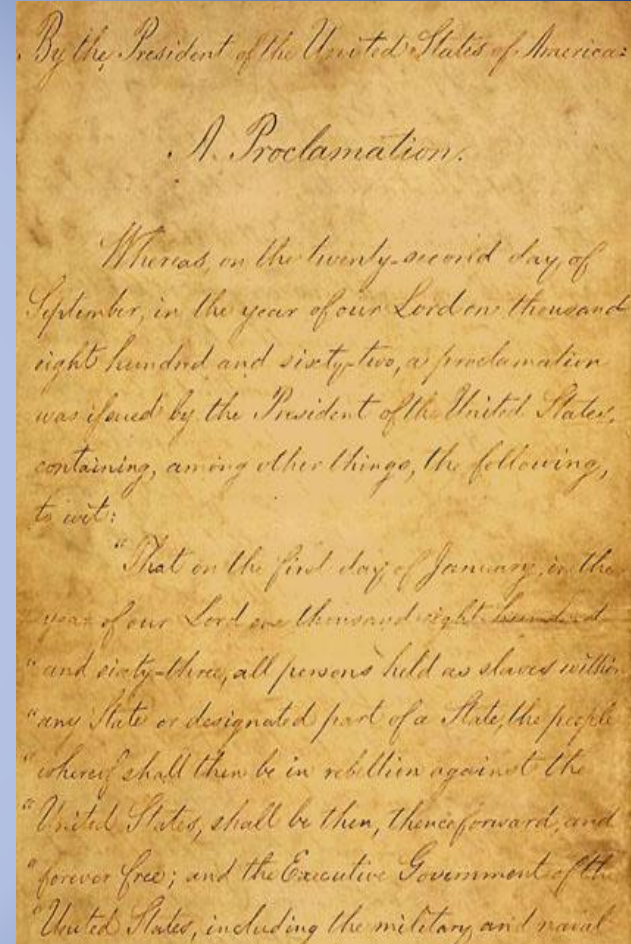 By the President of the United States of America:
A Proclamation.
Whereas, on the twenty-second day of
September, in the year of our Lord one thousand
eight hundred and sixty-two, a proclamation
was issued by the President of the United States,
containing, among other things, the following,
to wit:
"That on the first day of January, in the
year of our Lord one thousand eight hundred
"and sixty-three, all persons held as slaves within
"any State or designated part of a State, the people
"whereof shall then be in rebellion against the
"United States, shall be then, thenceforward, and
"forever free; and the Executive Government of the
"United States, including the military and naval